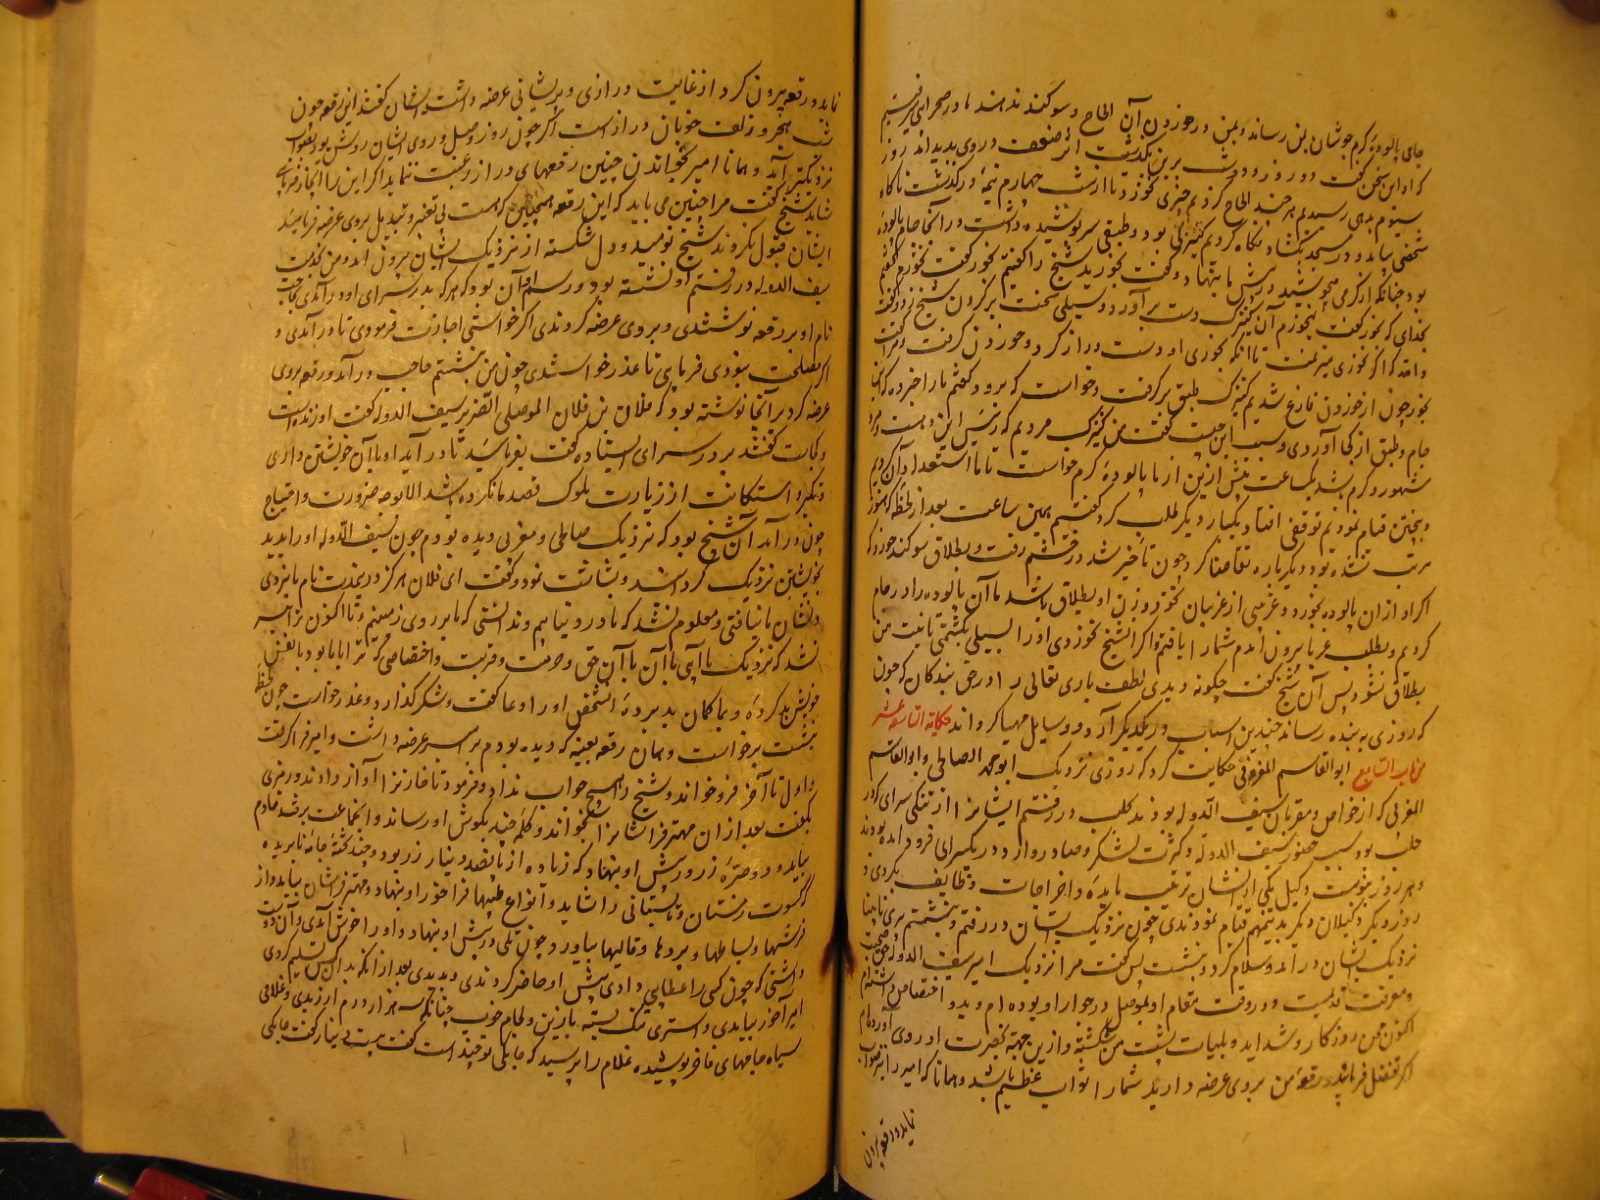 جای پالوده گرم جوشان بمن رساند و بمن در خوردن آن الحاح و سوکند ندهند ما در صحرا می رفتیم
که او این سخن گفت دو روز و دو شب بر من بگذشت اثر ضعف در وی پدید آمد روز
سیوم بدهی رسیدیم هر چند الحاح کردیم چیزی نخورد تا از شب چهارم نیمهٔ در گذشت ناگاه
شخصی بیامد و در مسجد بگشاد نگاه کردیم کنیزکی بود و طبقی سر پوشیده داشت در آنجا جام پالوده
بود چنانکه از گرمی میجوشید در پیش ما بنهاد و گفت بخورید شیخ را گفتم بخور گفت نخورم گفتم
بخدای که بخور گفت نخورم آن کنیزک دست برآورد و سیلی سخت بر گردن شیخ زد و گفت
والله که اگر نخوری میزنمت تا آنکه بخوری او دست دراز کرد و خوردن گرفت و مرا گفت
بخور چون از خوردن فارغ شدیم کنیزک طبق برگرفت و خواست که برود گفتم ما را خبر ده که این
جام و طبق از کجا آوردی و سبب این چیست گفت من کنیزک مردیم که رئیس این ده است و مرد
مشهور و کرم باشد یکساعت پیش ازین از ما پالودهٔ گرم خواست تا ما استعداد آن کردیم
و بپختن قیام نمودیم توقفی افتاد یکبار دیگر طلب کرد گفتیم همین ساعت بعد از لحظه که هنوز
مرتب نشده بود دیگرباره تقاضا کرد چون تأخیر شد در خشم رفت و بطلاق سوکند خورد که
اگر او ازان پالوده بخورد و غریبی از غریبان نخورد زن او بطلاق باشد ما آن پالوده را در جام
کردیم و بطلب غربا بیرون آمدم شما را یافتم و اگر این شیخ نخوردی او را بسیلی بکشتمی تا بنت من
بطلاق نشود پس آن شیخ گفت چگونه دیدی لطف باری تعالی را در حق بندگان که چون
که روزی به بنده رساند چندین اسباب در یکدیگر آرد و وسایل مهیا کرداند حکایة التاسع عشر
من باب السابع ابوالقاسم المغربی حکایت کرد که روزی نزدیک ابو محمد الصالحی و ابوالقاسم
المغربی که از خواص و مقربان سیف الدوله بودند بحلب در رفتم ایشانرا از تنگی سرای که در
حلب بود سبب حضور سیف الدوله و کثرت لشکر و صادر و وارد در یکسرای فرود آمده بودند
و هر روز بنوبت وکیل یکی از ایشان ترتیب مایده و اخراجات وظایف بکردی و
روز دیگر وکیلان دیگر بدینمهم قیام نمودندی چون نزدیک ایشان در رفتم و بنشستم پیری نابینا
نزدیک ایشان در آمد و سلام کرد و بنشست پس گفت مرا نزدیک امیر سیف الدوله حق صحبت
و معرفت قدیمست و در وقت مقام او بموصل در جوار او بوده ام و بدو اختصاص داشته ام
اکنون محن روزکار و شداید و بلیات پشت من شکسته و ازین جهة بحضرت او روی آورده ام
اگر تفضل فرمائید و رقعهٔ من بروی عرضه دارید شما را ثواب عظیم باشد و همانا که امیر را بر قضا
نماید و رقعه بیرون
نماید و رقعه بیرون کرد از غایت درازی و پریشانی عرضه داشت ایشان گفتند این رقعه چون
شب هجر و زلف خوبان درازست اگر چون روز وصل و روی ایشان روشن بود بصواب
نزدیکتر آید و همانا امیر بخواندن چنین رقعهای دراز رغبت ننماید اگر این را ایجاز فرمائی
شاید شیخ گفت مرا چنین می باید که این رقعه همچنین که هست بی تغییر و تبدیل بروی عرضه فرمائید
ایشان قبول نکردند شیخ نومید و دل شکسته از نزدیک ایشان بیرون آمد و من بخدمت
سیف الدوله در رفتم او نشسته بود و رسم او آن بود که هر که بدر سرای او در آمدی حاجب
نام او بر رقعه نوشتندی و بروی عرضه کردندی اگر خواستی اجازت فرمودی تا در آمدی و
اگر مصلحت نبودی فرمای تا عذر خواستندی چون من بنشستم حاجب در آمد و رقعه بروی
عرضه کرد بر آنجا نوشته بود که فلان بن فلان الموصلی الضریر سیف الدوله گفت او زنده است
و کجاست گفتند بر در سرای ایستاده گفت بفرمائید تا در آید او با آن خویشتن داری
و تکبر و استنکافت از زیارت ملوک قصد ما نکرده باشد الا بوجه ضرورت و احتیاج
چون در آمد آن شیخ بود که نزدیک صالحی و مغربی دیده بودم چون سیف الدوله او را بدید
بخویشتن نزدیک گردانید و بشاشت نمود و گفت ای فلان هرگز در مدت نام ما نبردی
و نشان ما نیافتی و معلوم نشد که ما در دنیا ایم و ندانستی که ما بر روی زمینیم و تا اکنون ترا میسر
نشد که نزدیک ما آیی با آن حق و حرمت و قربت و اختصاصی که ترا با ما بود با نفس
خویش بد کردهٔ و بما گمان بد بردهٔ آن شخص او را دعا گفت و شکر گذارد و عذر خواست چون لحظه
بنشست برخواست و همان رقعه بعینه که دیده بودم بر امیر عرضه داشت و امیر فراگرفت
و اول تا آخر فرو خواند و شیخ را هیچ جواب نداد و فرمود تا خازنرا آواز دادند و رمزی
بگفت بعد ازان مهتر فراشانرا بخواند و کلمهٔ چند بگوش او رساند و آنجماعت برفتند خادم
بیامد و دو صرهٔ زر در پیش او بنهاد که زیاده از پانصد دینار زر بود و چند تختهٔ جامهٔ نابریده
که کسوت زمستان و تابستانی را شاید و انواع طیبها فراخور او بنهاد و مهتر فراشان بیامد و از
فرشها و بساطها و پردها و قالیها بیاورد چون تلی در پیش او بنهاد و او را خوش آمدی و آن دوست
داشتی که چون کسی را عطائی دادی پیش او حاضر کردندی و بدیدی بعد از آنکه بدان کس تسلیم کردی
امیر آخور بیامدی و استری تنگ بسته با زین و لجام خوب چنانکه سه هزار درم ارزیدی و غلامی
سیاه جامهای فاخر پوشیده غلام را پرسید که جامکی تو چند است گفت بیست دینار گفت جامکی